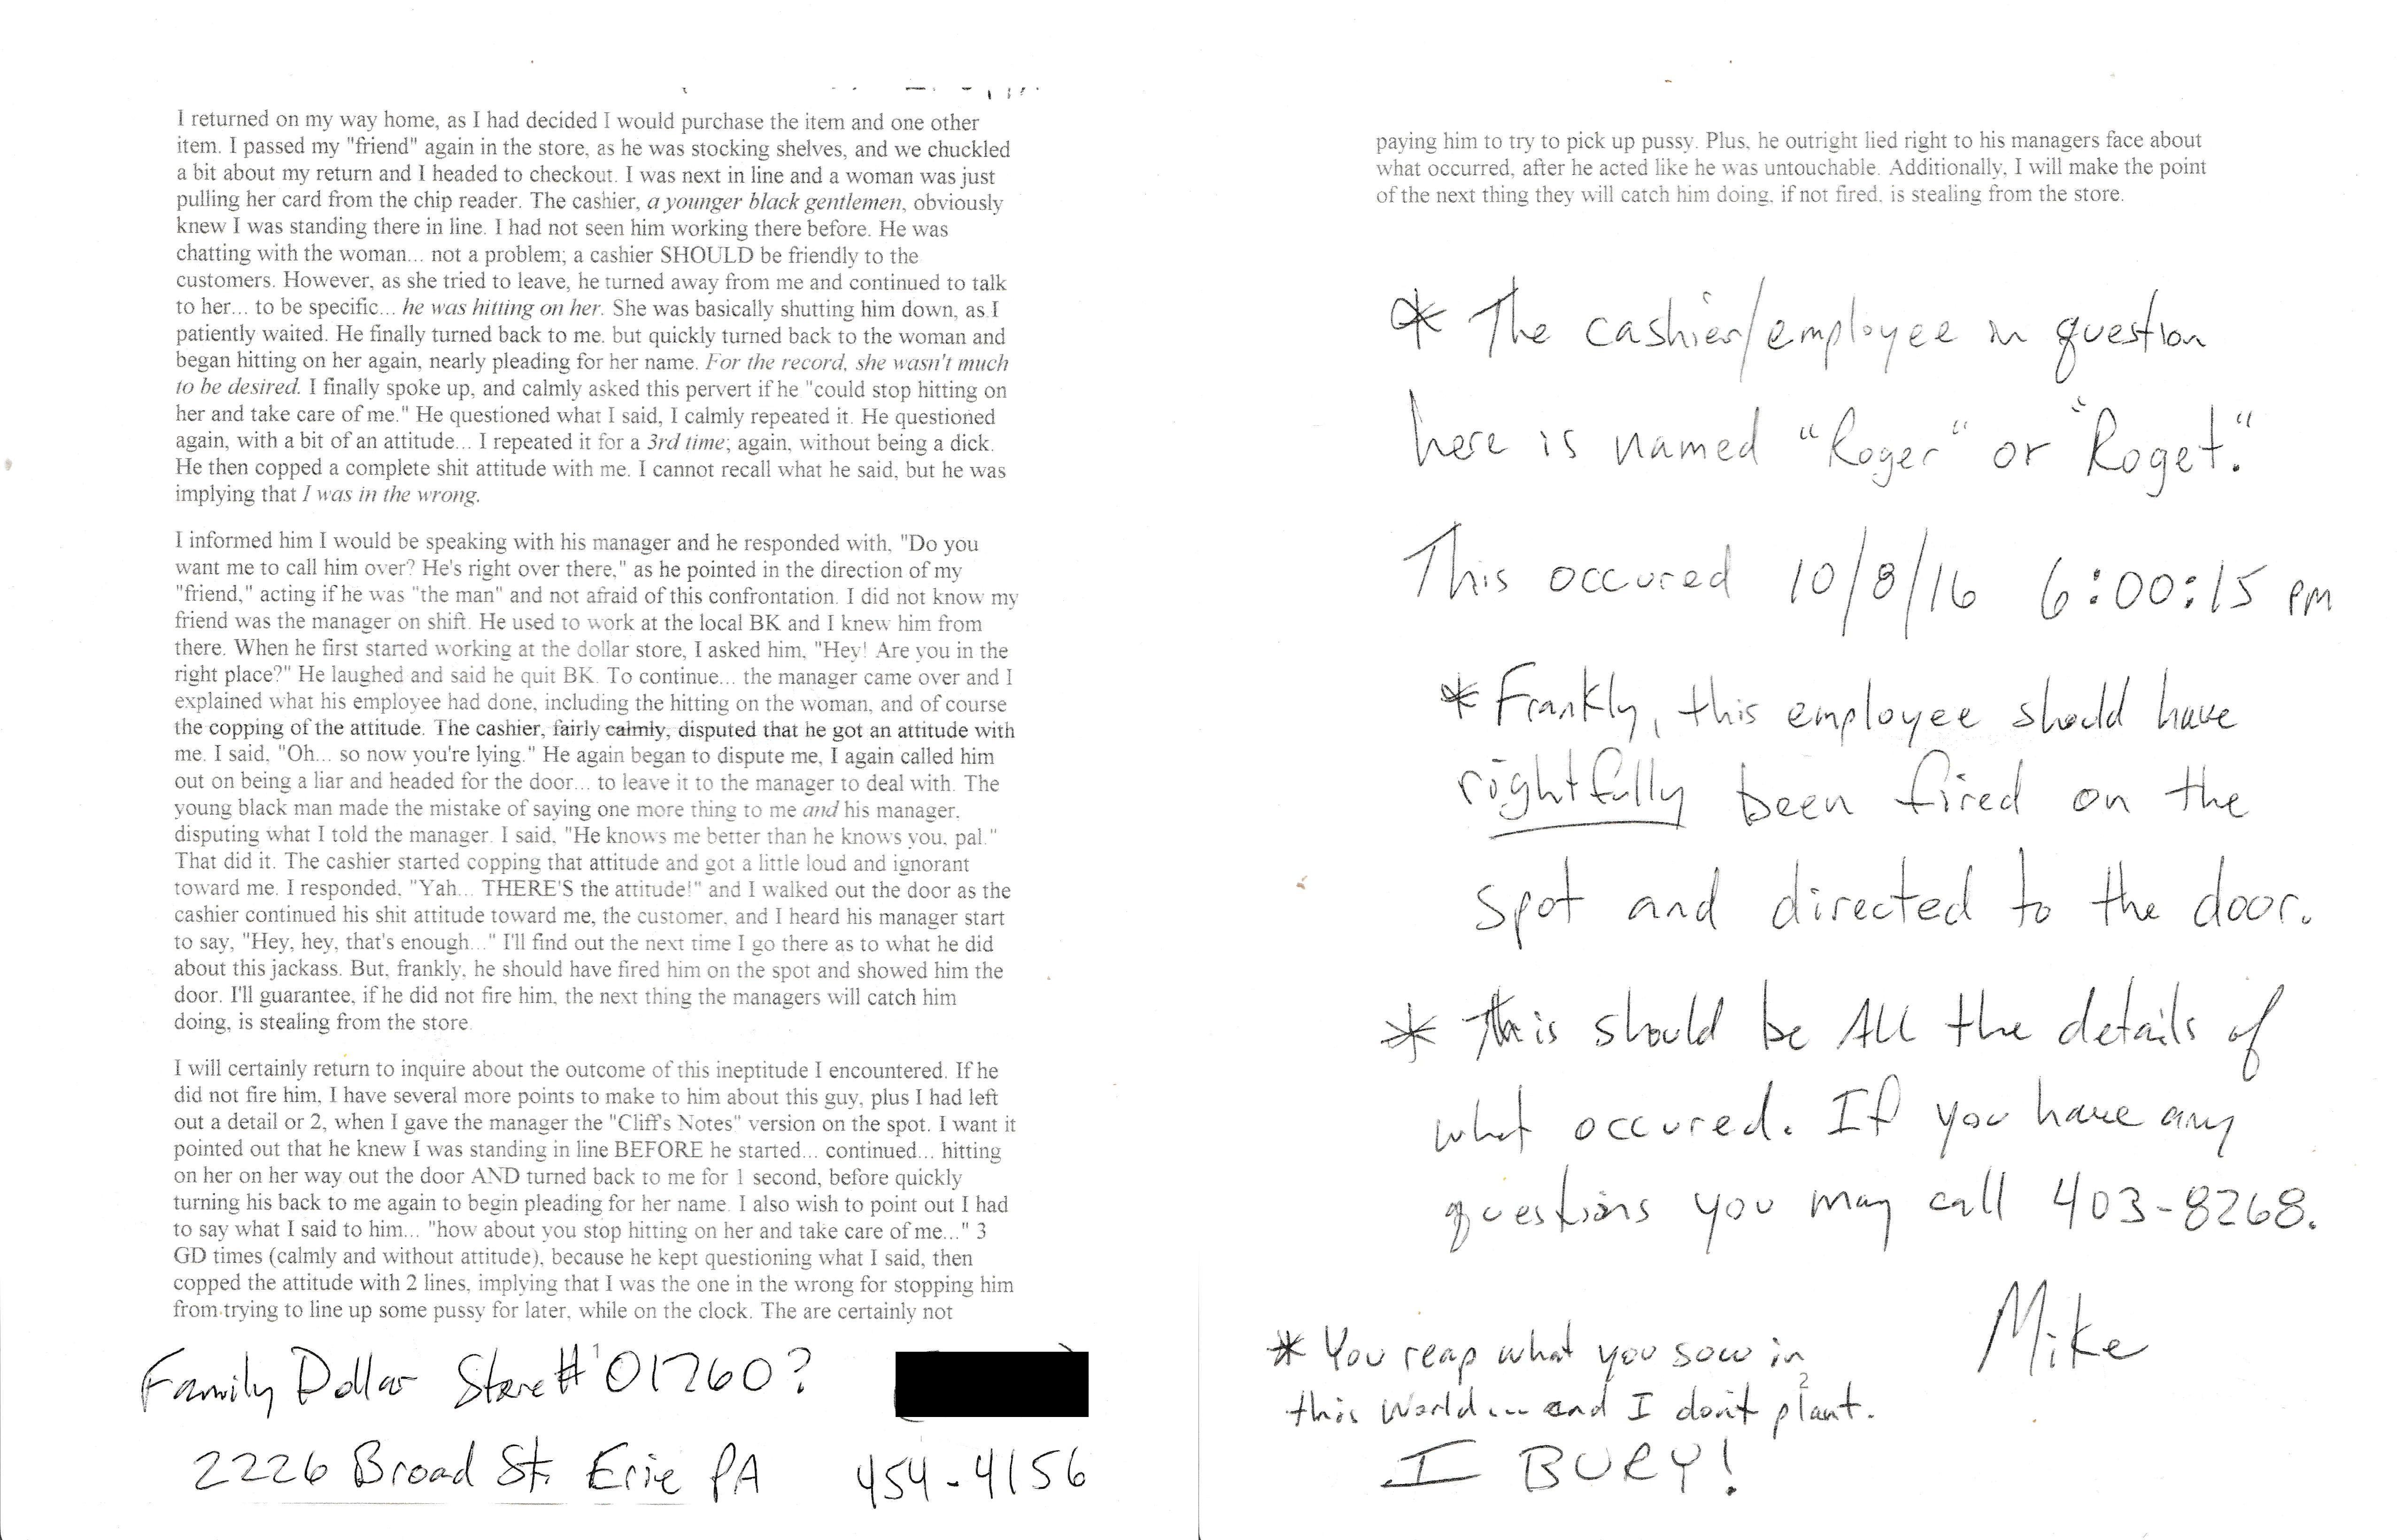 I returned on my way home, as I had decided I would purchase the item and one other
item. I passed my "friend" again in the store, as he was stocking shelves, and we chuckled
a bit about my return and I headed to checkout. I was next in line and a woman was just
pulling her card from the chip reader. The cashier, a younger black gentlemen, obviously
knew I was standing there in line. I had not seen him working there before. He was
chatting with the woman... not a problem; a cashier SHOULD be friendly to the
customers. However, as she tried to leave, he turned away from me and continued to talk
to her... to be specific... he was hitting on her. She was basically shutting him down, as I
patiently waited. He finally turned back to me, but quickly turned back to the woman and
began hitting on her again, nearly pleading for her name. For the record, she wasn't much
to be desired. I finally spoke up, and calmly asked this pervert if he "could stop hitting on
her and take care of me." He questioned what I said, I calmly repeated it. He questioned
again, with a bit of an attitude... I repeated it for a 3rd time; again, without being a dick.
He then copped a complete shit attitude with me. I cannot recall what he said, but he was
implying that I was in the wrong.
I informed him I would be speaking with his manager and he responded with, "Do you
want me to call him over? He's right over there," as he pointed in the direction of my
"friend," acting if he was "the man" and not afraid of this confrontation. I did not know my
friend was the manager on shift. He used to work at the local BK and I knew him from
there. When he first started working at the dollar store, I asked him, "Hey! Are you in the
right place?" He laughed and said he quit BK. To continue... the manager came over and I
explained what his employee had done, including the hitting on the woman, and of course
the copping of the attitude. The cashier, fairly calmly, disputed that he got an attitude with
me. I said, "Oh... so now you're lying." He again began to dispute me, I again called him
out on being a liar and headed for the door... to leave it to the manager to deal with. The
young black man made the mistake of saying one more thing to me and his manager,
disputing what I told the manager. I said, "He knows me better than he knows you, pal."
That did it. The cashier started copping that attitude and got a little loud and ignorant
toward me. I responded, "Yah... THERE'S the attitude!" and I walked out the door as the
cashier continued his shit attitude toward me, the customer, and I heard his manager start
to say, "Hey, hey, that's enough..." I'll find out the next time I go there as to what he did
about this jackass. But, frankly, he should have fired him on the spot and showed him the
door. I'll guarantee, if he did not fire him, the next thing the managers will catch him
doing, is stealing from the store.
I will certainly return to inquire about the outcome of this ineptitude I encountered. If he
did not fire him, I have several more points to make to him about this guy, plus I had left
out a detail or 2, when I gave the manager the "Cliff's Notes" version on the spot. I want it
pointed out that he knew I was standing in line BEFORE he started... continued... hitting
on her on her way out the door AND turned back to me for 1 second, before quickly
turning his back to me again to begin pleading for her name. I also wish to point out I had
to say what I said to him... "how about you stop hitting on her and take care of me..." 3
GD times (calmly and without attitude), because he kept questioning what I said, then
copped the attitude with 2 lines, implying that I was the one in the wrong for stopping him
from trying to line up some pussy for later, while on the clock. The are certainly not
Family Dollar Store # 01760?
2226 Broad St. Erie PA 454-4156
paying him to try to pick up pussy. Plus, he outright lied right to his managers face about
what occurred, after he acted like he was untouchable. Additionally, I will make the point
of the next thing they will catch him doing, if not fired, is stealing from the store.
* The cashier/employee in question
here is named "Roger" or "Roget."
This occured 10/8/16 6:00:15 PM
* Frankly, this employee should have
rightfully been fired on the
spot and directed to the door.
* This should be All the details of
what occured. If you have any
questions you may call 403-8268.
Mike
* You reap what you sow in
this world... and I don't plant.
I BURY!